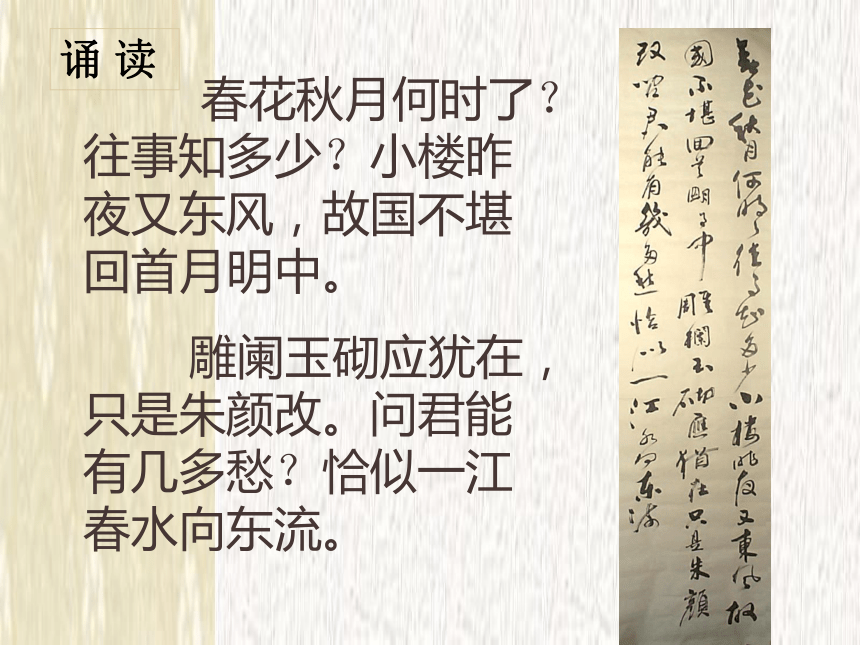 诵 读
春花秋月何时了？
往事知多少？小楼昨
夜又东风，故国不堪
回首月明中。
雕阑玉砌应犹在，
只是朱颜改。问君能
有几多愁？恰似一江
春水向东流。
春花秋月何時了往事知多少小樓昨夜又東風故
國不堪回首明月中雕欄玉砌應猶在只是朱顏
改問君能有幾多愁恰似一江水向東流